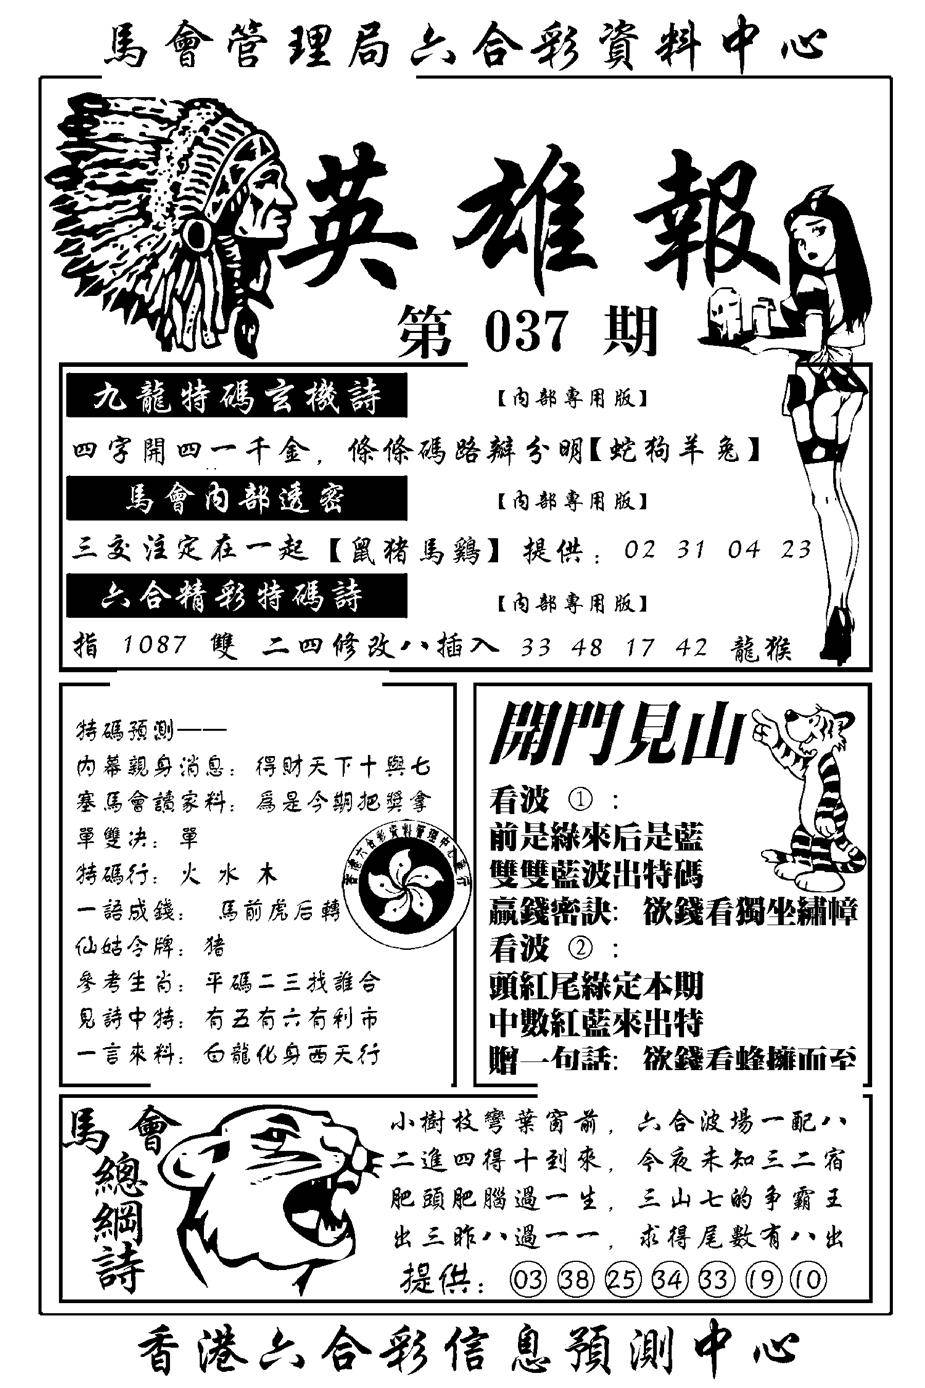 馬會管理局六合彩資料中心
英雄報
第 037 期
九龍特碼玄機詩 【內部專用版】
四字開四一千金，條條碼路辯分明【蛇狗羊兔】
馬會內部透密 【內部專用版】
三交注定在一起【鼠猪馬鷄】提供：02 31 04 23
六合精彩特碼詩 【內部專用版】
指 1087 雙 二四修改八插入 33 48 17 42 龍猴
特碼預測——
內幕親身消息：得財天下十與七
塞馬會讀家料：爲是今朝把獎拿
單雙决：單
特碼行：火 水 木
一語成錢： 馬前虎后轉
仙姑令牌：猪
參考生肖：平碼二三找誰合
見詩中特：有五有六有利市
一言來料：白龍化身西天行
香港六合彩資料管理中心發行
開門見山
看波 ①：
前是綠來后是藍
雙雙藍波出特碼
贏錢密訣：欲錢看獨坐繡幃
看波 ②：
頭紅尾綠定本期
中數紅藍來出特
贈一句話：欲錢看蜂擁而至
馬會總綱詩
小樹枝彎葉窗前，六合波場一配八
二進四得十到來，今夜未知三二宿
肥頭肥腦過一生，三山七的争霸王
出三昨八過一一，求得尾數有八出
提供：03 38 25 34 33 19 10
香港六合彩信息預測中心